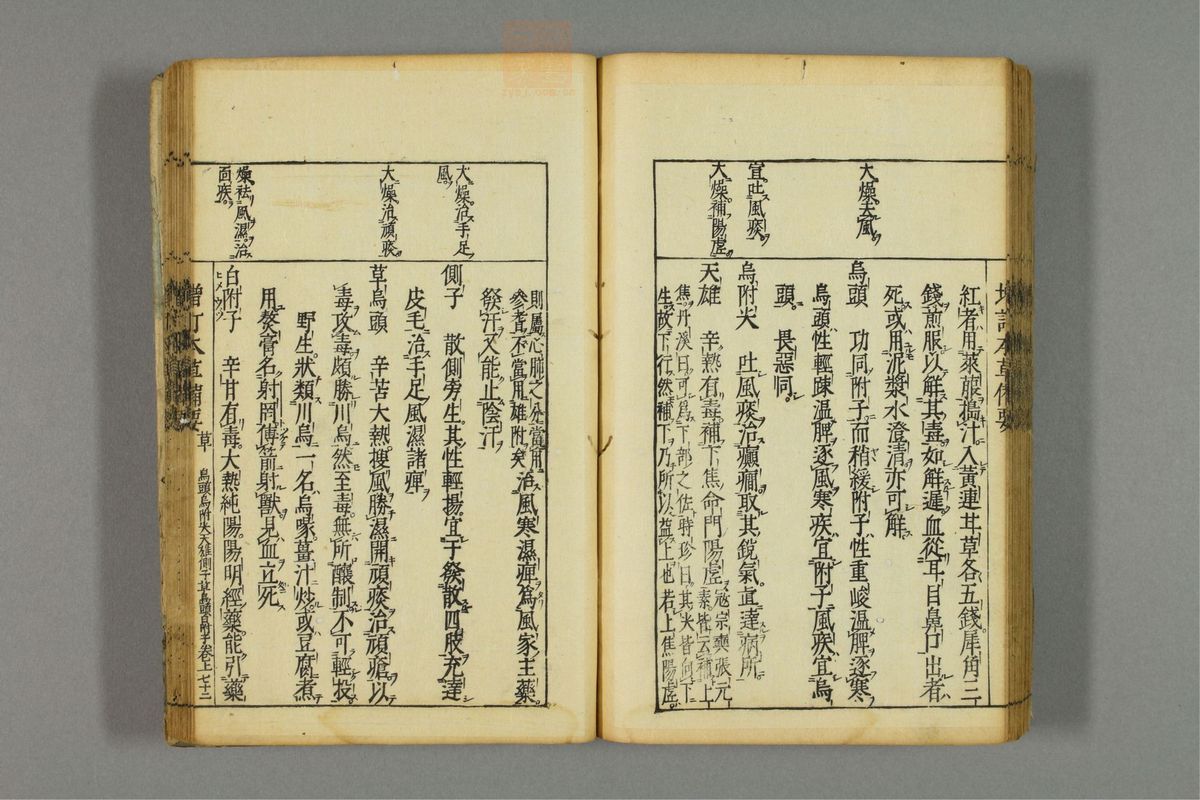 大燥去風
宣吐風痰
大燥補陽虛
紅者用萊菔搗汁入黃連甘草各五錢犀角三
錢煎服以解其毒如解遲血從耳目鼻口出者
死或用泥漿水澄清亦可解
烏頭　功同附子而稍緩附子性重峻溫脾逐寒
烏頭性輕疎溫脾逐風寒疾宜附子風疾宜烏
頭　畏惡同
烏附尖　吐風痰治癲癇取其銳氣直達病所
天雄　辛熱有毒補下焦命門陽虛寇宗奭張元
素皆云補上
焦丹溪曰可為下部之佐時珍曰其尖皆向下
生故下行然補下乃所以益上也若上焦陽虛
大燥治手足
風
大燥治頑痰
燥祛風濕治
面疾
則屬心肺之分當用
參耆不當用雄附矣治風寒濕痺為風家主藥
發汗又能止陰汗
側子　散側旁生其性輕揚宜于發散四肢充達
皮毛治手足風濕諸痺
草烏頭　辛苦大熱搜風勝濕開頑痰治頑瘡以
毒攻毒頗勝川烏然至毒無所釀制不可輕投
野生狀類川烏一名烏喙薑汁炒或豆腐煮
用熬膏名射罔傅箭射獸見血立死
白附子　辛甘有毒大熱純陽陽明經藥能引藥
ヒメウツ
增訂本草備要　草　烏頭烏附尖天雄側子草烏頭白附子卷上七十二